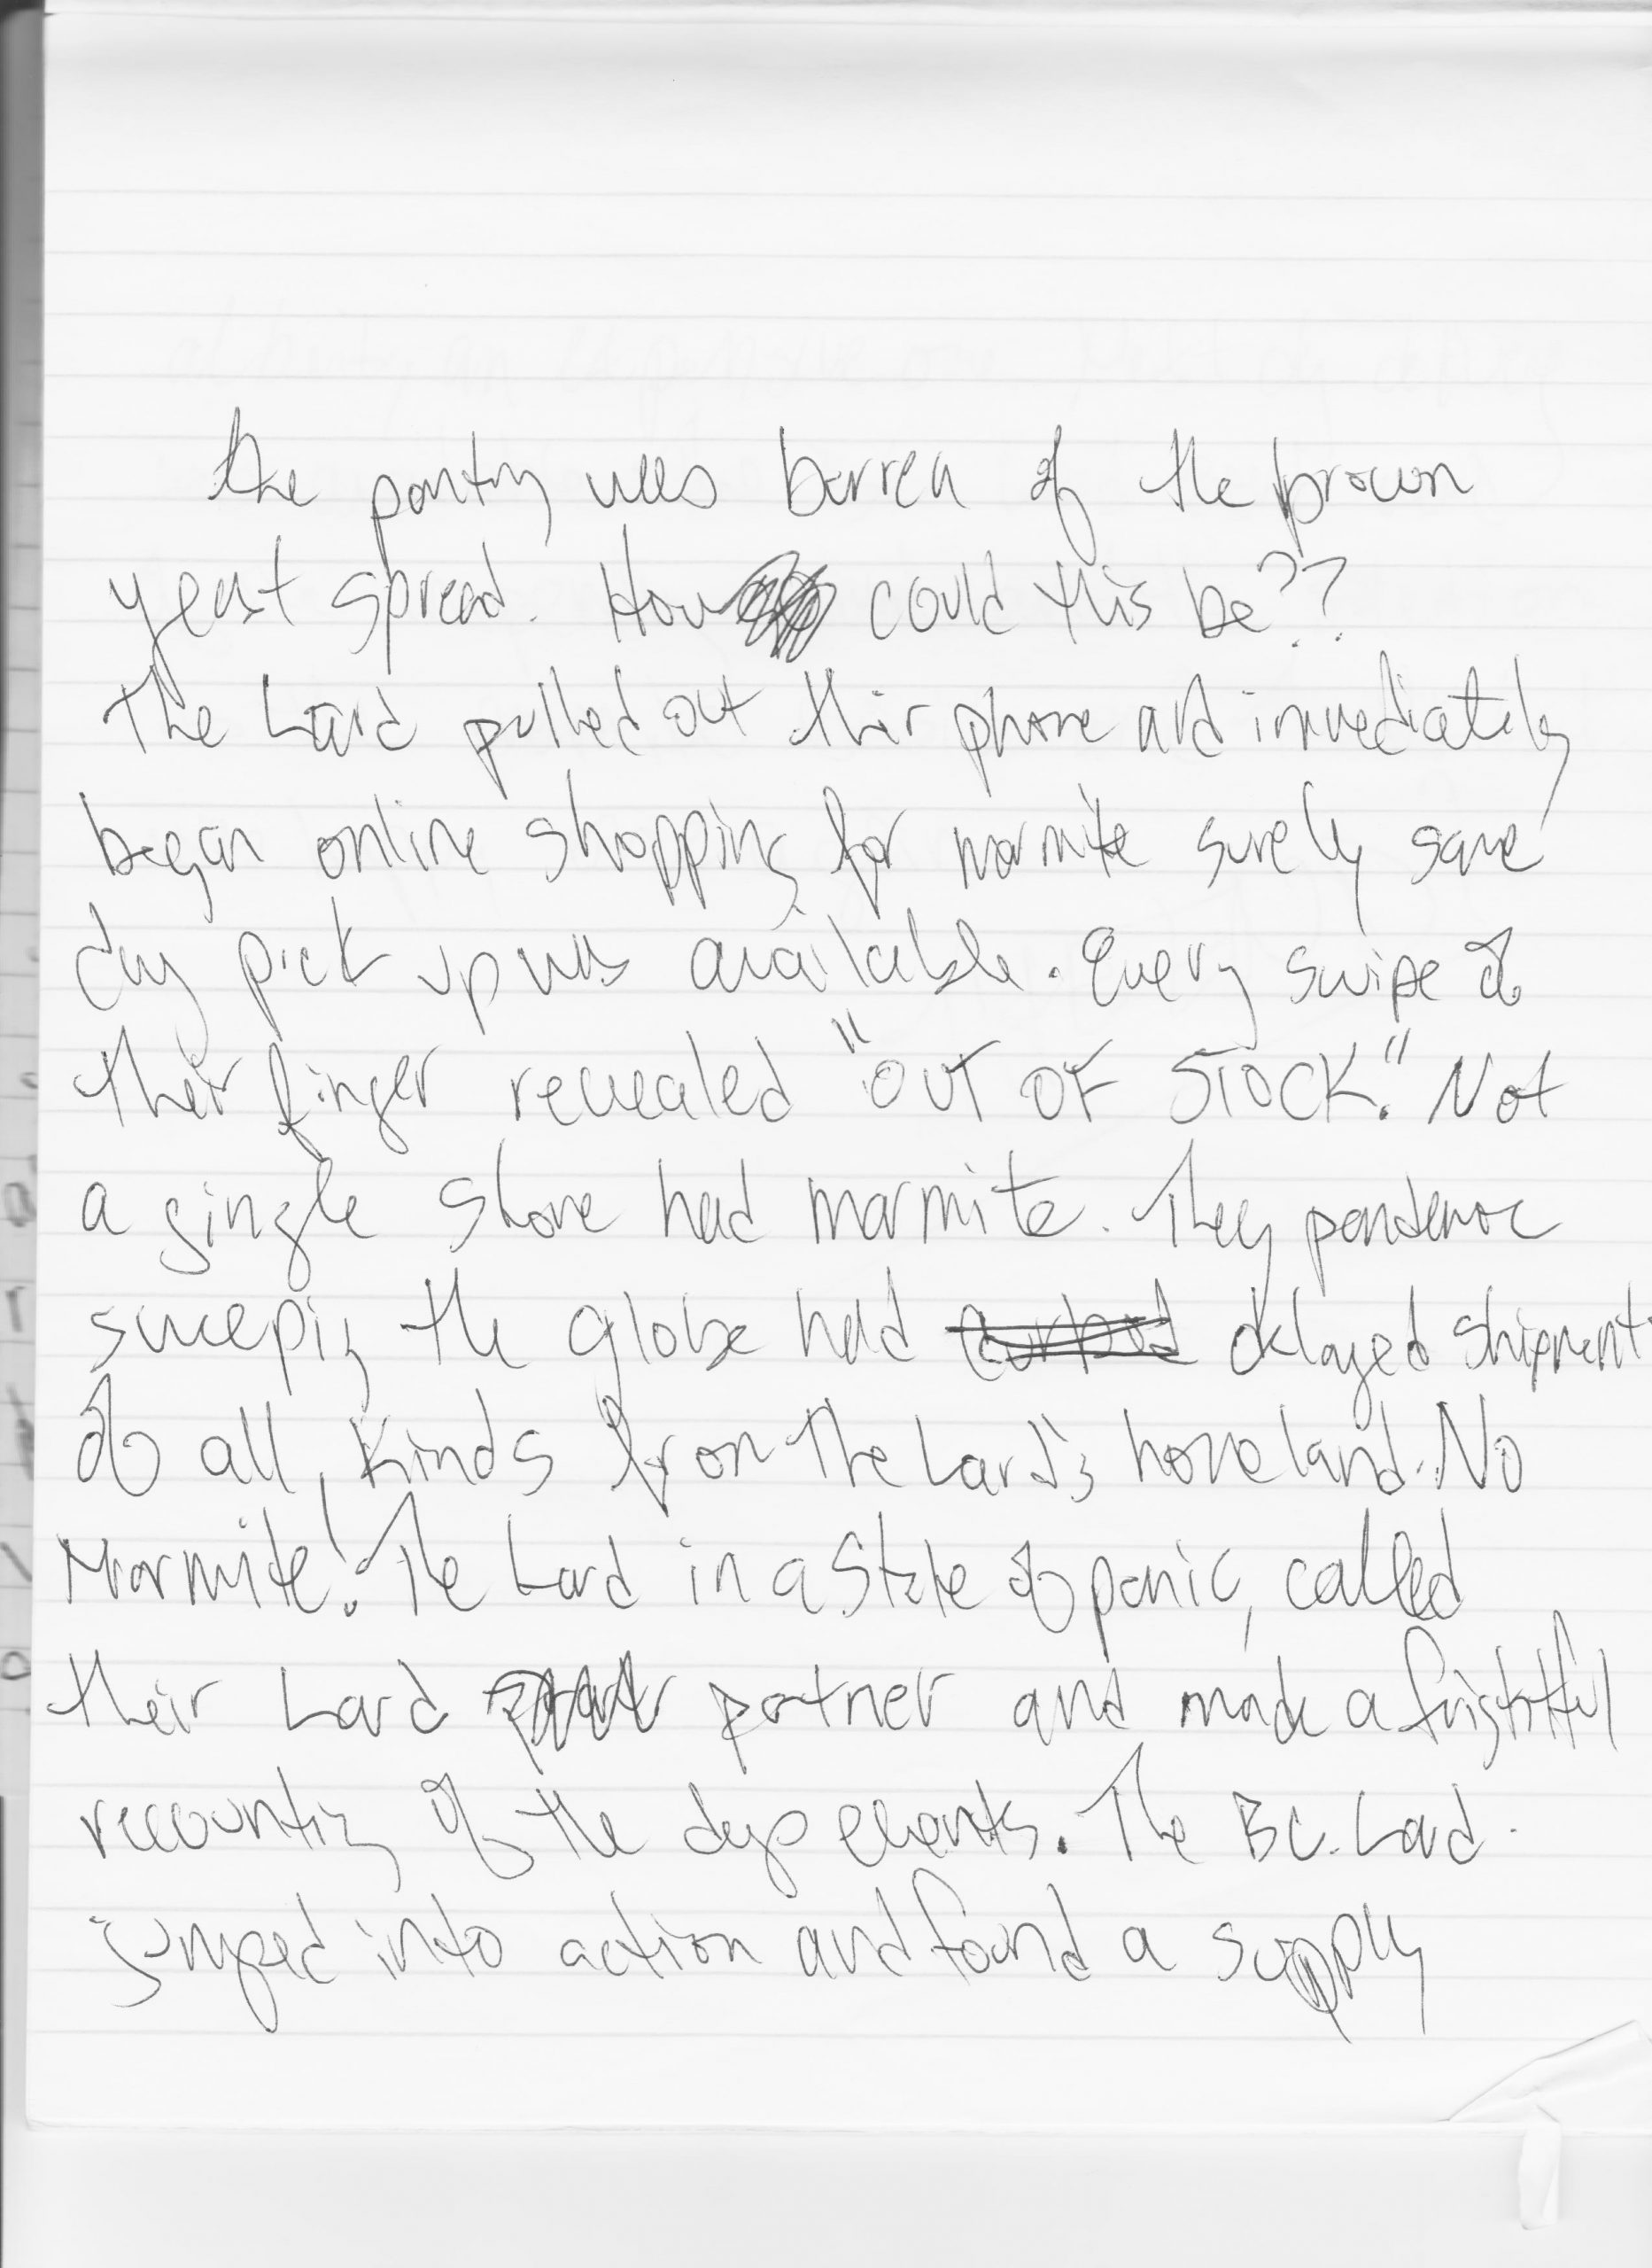 The pantry was barren of the brown
yeast spread. How could this be??
The Laird pulled out their phone and immediately
began online shopping for marmite surely same
day pick up was available. Every swipe of
their finger revealed "OUT OF STOCK." Not
a single store had marmite. They pandemic
sweeping the globe had delayed shipments
of all kinds from the Lard's homeland. No
Marmite! The Lard in a state of panic, called
their Lard partner and made a frightful
recounting of the days events. The BC. Lard
jumped into action and found a supply